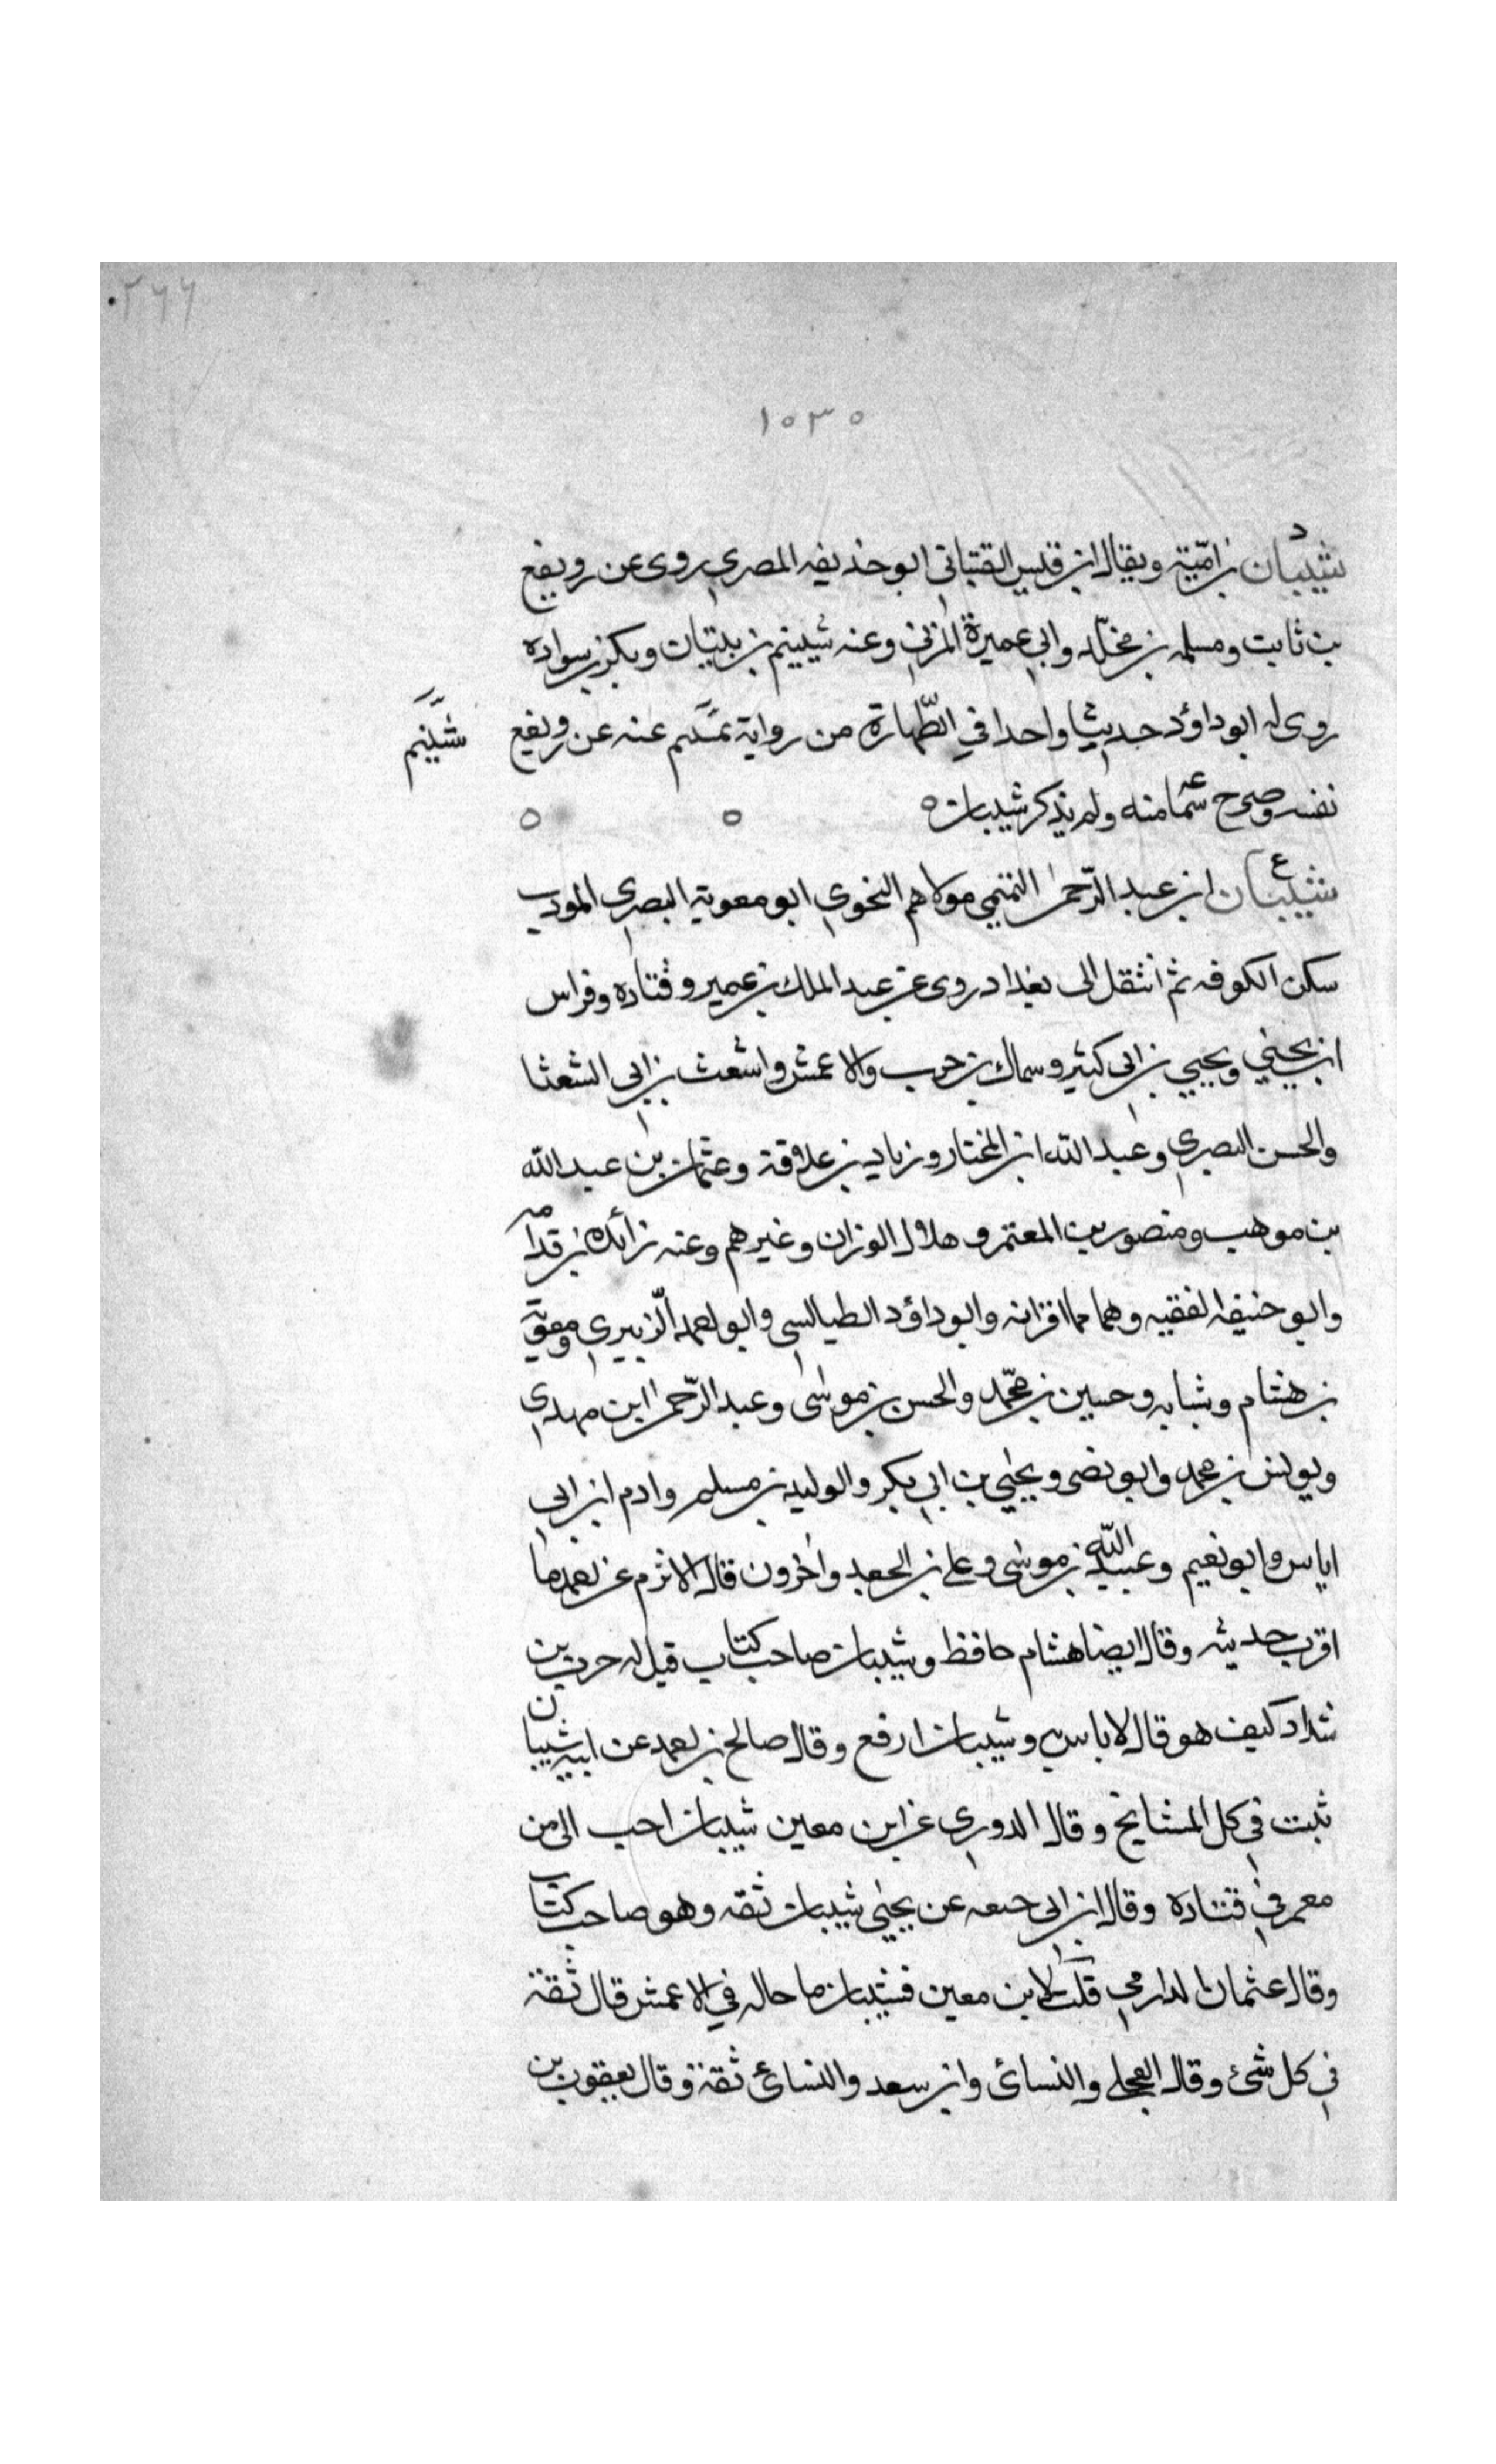 ٢٦٦
١٥٣٥
د
شيبان بن امية ويقال ابن قيس القتباني ابو حذيفه المصري روى عن رويفع
بن ثابت ومسلمه بن مخلد وابي عميرة المزني وعنه شييم بن بيتان وبكر بن سواده
روى له ابو داؤد حديثا واحدا في الطهارة من رواية عنه عن رويفع
شييم
نفسه وصرح منه ولم يذكر شيبان ه
ع
شيبان ابن عبد الرحمن التميمي مولاهم النحوي ابو معوية البصري المودب
سكن الكوفه ثم انتقل الى بغداد روى عن عبد الملك بن عمير وقتاده وفراس
ابن يحيي ويحيي بن ابي كثير وسماك بن حرب والاعمش واشعث بن ابي الشعثا
والحسن البصري وعبد الله ابن المختار وزياد بن علاقة وعثمان بن عبد الله
بن موهب ومنصور بن المعتمر وهلال الوزان وغيرهم وعنه زائده بن قدامه
وابو حنيفه الفقيه وهما اقرانه وابو داؤد الطيالسي وابو احمد الزبيري ومعوية
بن هشام وشبابه وحسين بن محمد والحسن بن موسى وعبد الرحمن ابن مهدي
ويونس بن محمد وابو نضر ويحيي بن ابي بكر والوليد بن مسلم وادم ابن ابي
اياس وابو نعيم وعبيد الله بن موسى وعلي بن الجعد واخرون قال الاثرم عن احمد ما
اقرب حديثه وقال ايضا هشام حافظ وشيبان صاحب كتاب قيل له حرب بن
شداد كيف هو قال لا باس به وشيبان ارفع وقال صالح بن احمد عن ابيه شيبان
ثبت في كل المشايخ وقال الدوري عن ابن معين شيبان احب الي من
معمر في قتادة وقال ابن ابي عن يحيي شيبان ثقه وهو صاحب كتاب
وقال عثمان الدارمي قلت لابن معين فشيبان ما حاله في الاعمش قال ثقة
في كل شئ وقال العجلي والنسائ وابن سعد والنسائ ثقة وقال يعقوب بن